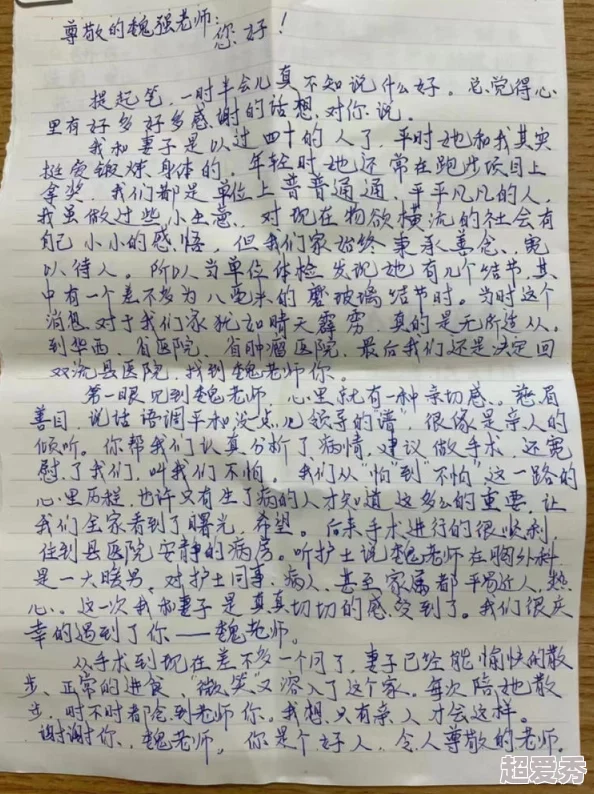 尊敬的魏强老师:
您好!
提起笔,一时半会儿真不知说什么好。总觉得心
里有好多好多感谢的话想对你说。
我和妻子是以过四十的人了,平时她和我其实
挺爱锻炼身体的。年轻时她还常在跑步项目上
拿奖。我们都是单位上普普通通、平平凡凡的人,
我虽做过些小生意,对现在物欲横流的社会有
自己小小的感悟,但我们家始终秉承善念、宽
以待人。所以当单位体检发现她有几个结节,其
中有一个差不多为八毫米的磨玻璃结节时。当时这个
消息对于我们家犹如晴天霹雳,真的是无所适从。
到华西、省医院、省肿瘤医院,最后我们还是决定回
双流县医院,找到魏老师你。
第一眼见到魏老师,心里就有一种亲切感。慈眉
善目,说话语调平和没点儿领导的"谱",很像是亲人的
倾听。你帮我们认真分析了病情,建议做手术,还宽
慰了我们,叫我们不怕。我们从"怕"到"不怕"这一路的
心里历程,也许只有生了病的人才知道这多么的重要,让
我们全家看到了曙光,希望。后来手术进行的很顺利,
住到县医院安静的病房。听护士说魏老师在胸外科
是一大暖男,对护士同事、病人、甚至家属都平易近人,热
心。这一次我和妻子是真真切切的感受到了。我们很庆
幸的遇到了你——魏老师。
从手术到现在差不多一个月了,妻子已经能愉快的散
步、正常的进食,"微笑"又深入了这个家。每次陪她散
步,时不时都念到老师你。我想,只有亲人才会这样。
谢谢你,魏老师。你是个好人,令人尊敬的老师。
超爱秀